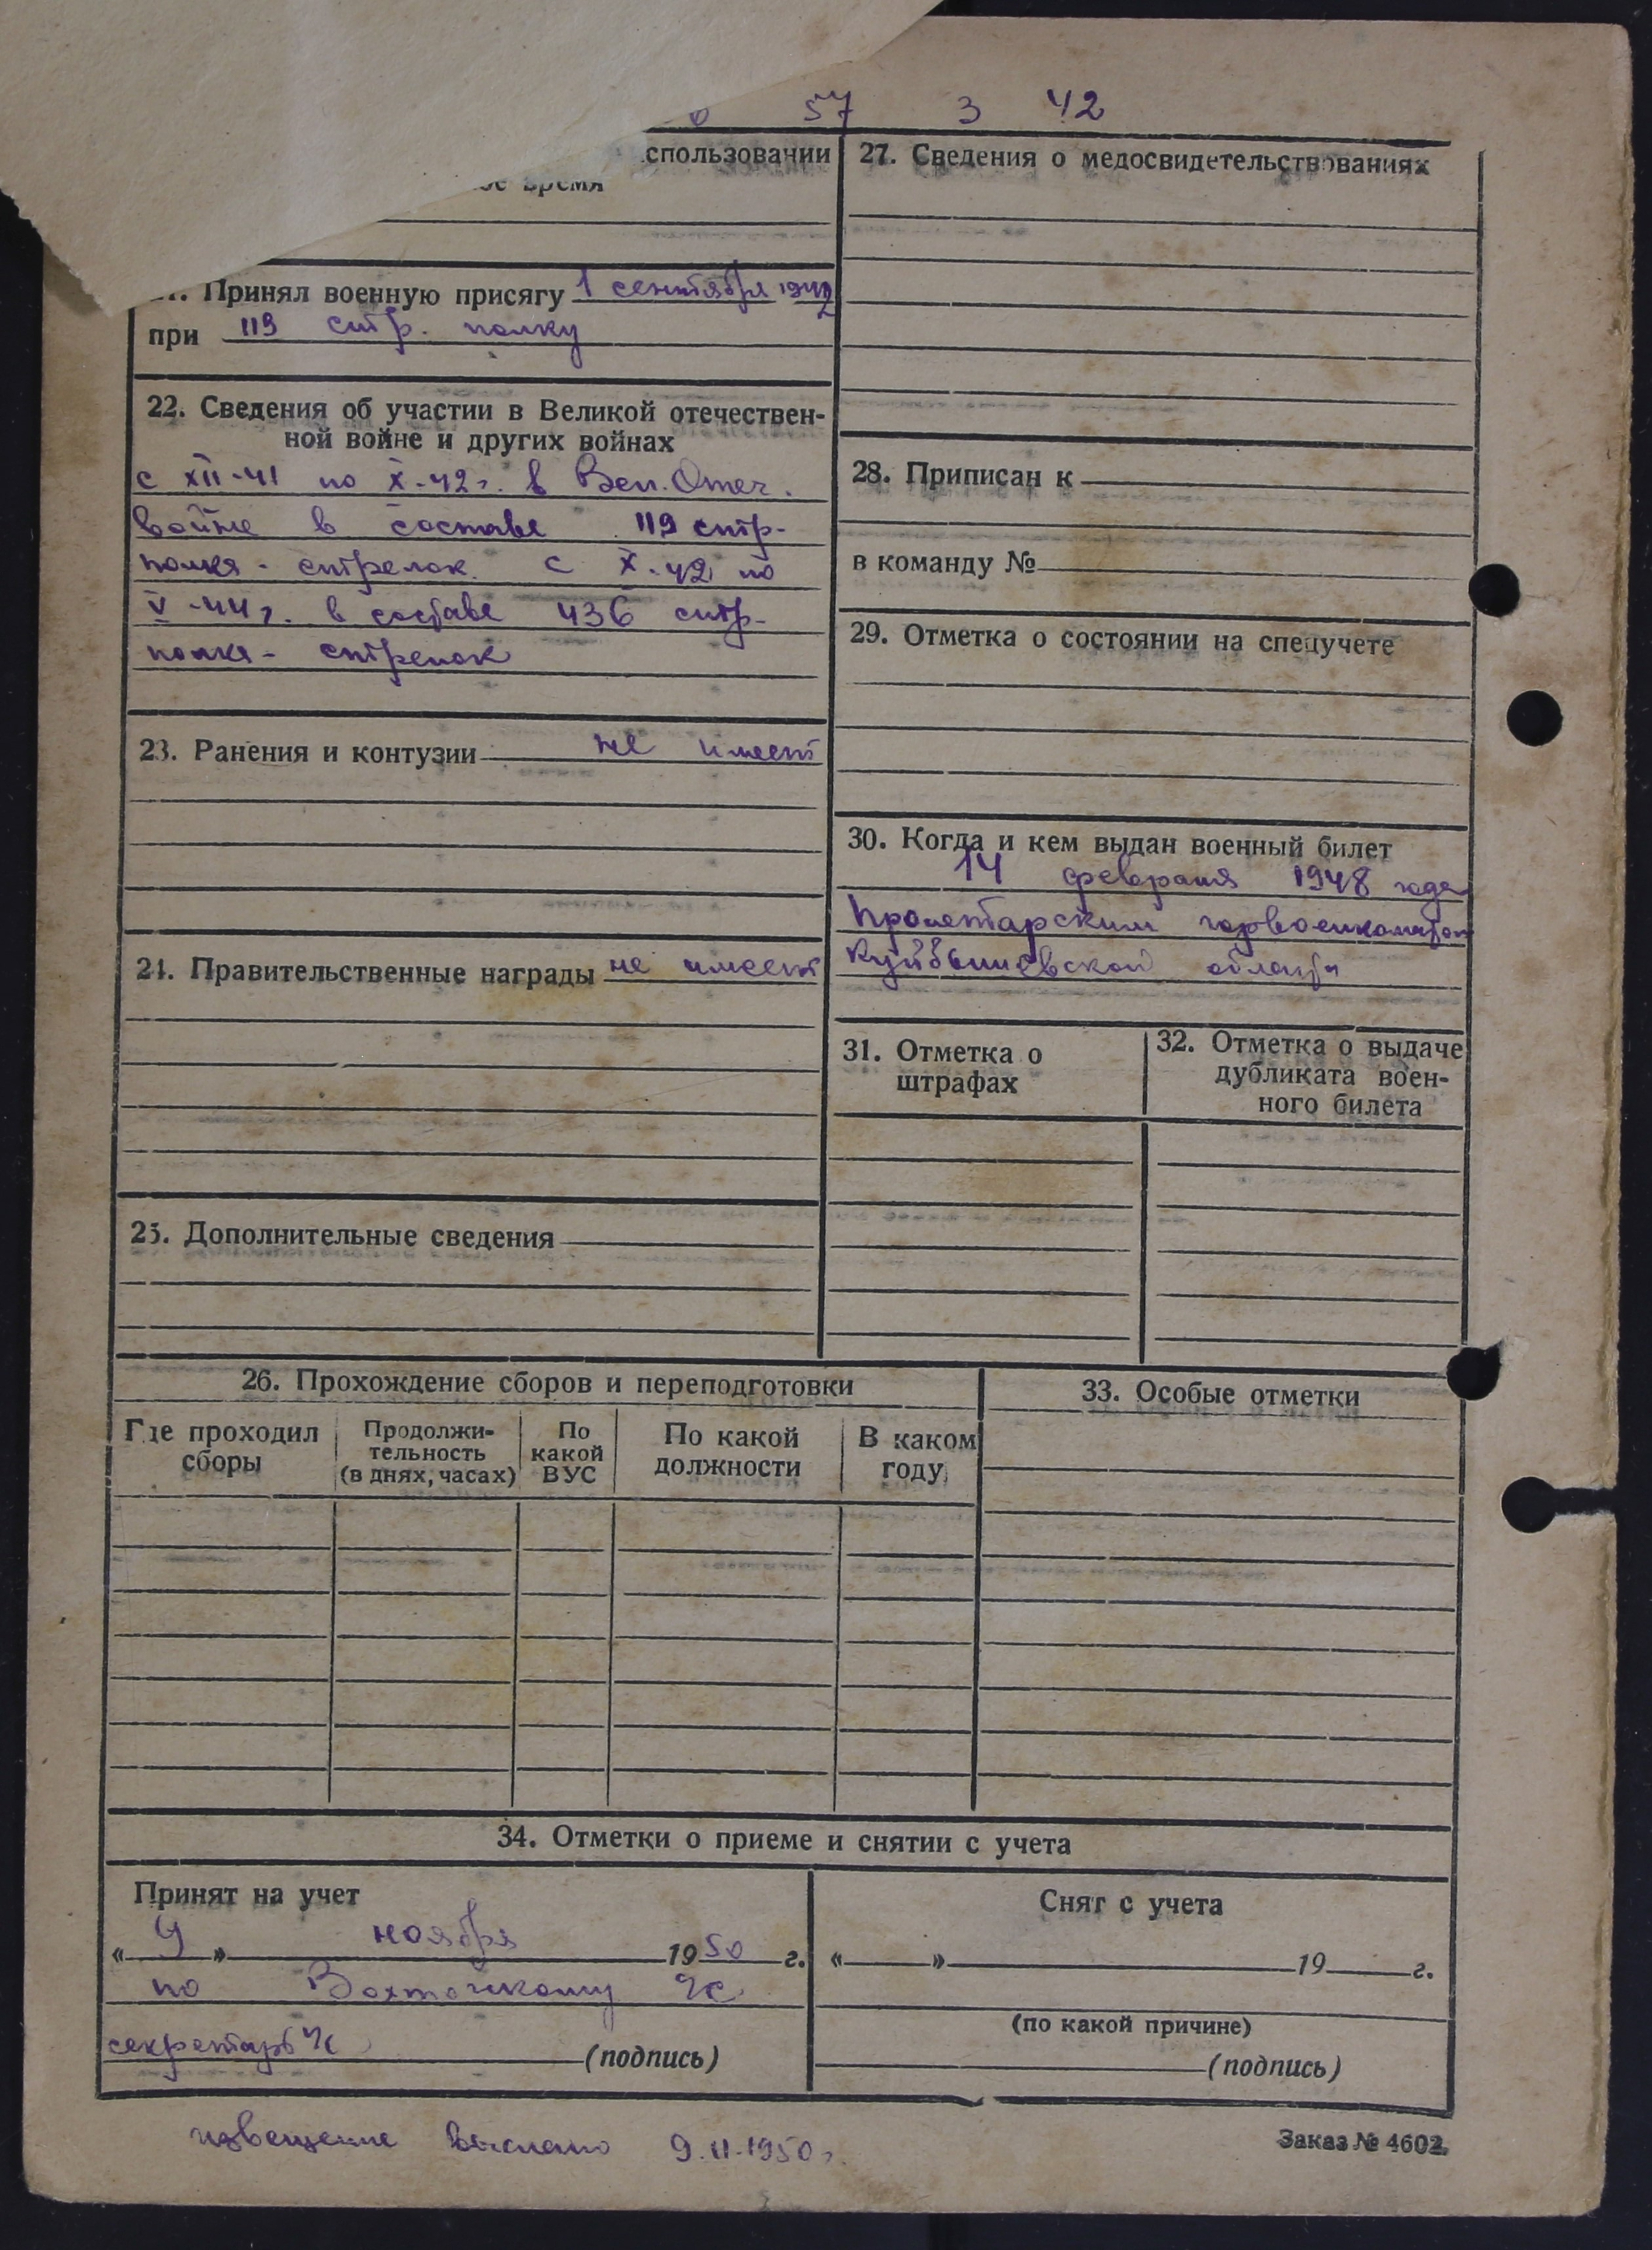 57 3 42
спользовании
ое время
Принял военную присягу 1 сентября 1942
при 119 стр. полку
22. Сведения об участии в Великой отечествен-
ной войне и других войнах
с XII-41 по X-42г. в Вел. Отеч.
войне в составе 119 стр-
полка - стрелок. с X-42 по
V-44г. в составе 436 стр-
полка - стрелок
23. Ранения и контузии не имеет
24. Правительственные награды не имеет
25. Дополнительные сведения
27. Сведения о медосвидетельствованиях
28. Приписан к
в команду №
29. Отметка о состоянии на спецучете
30. Когда и кем выдан военный билет
14 февраля 1948 года
Пролетарским горвоенкоматом
Куйбышевской области
31. Отметка о
штрафах
32. Отметка о выдаче
дубликата воен-
ного билета
26. Прохождение сборов и переподготовки
Где проходил
сборы
Продолжи-
тельность
(в днях, часах)
По
какой
ВУС
По какой
должности
В каком
году
33. Особые отметки
34. Отметки о приеме и снятии с учета
Принят на учет
« 9 » ноября 1950 г.
по
секретарь
(подпись)
Снят с учета
« » 19 г.
(по какой причине)
(подпись)
извещение выслано 9.11.1950г.
Заказ № 4602.